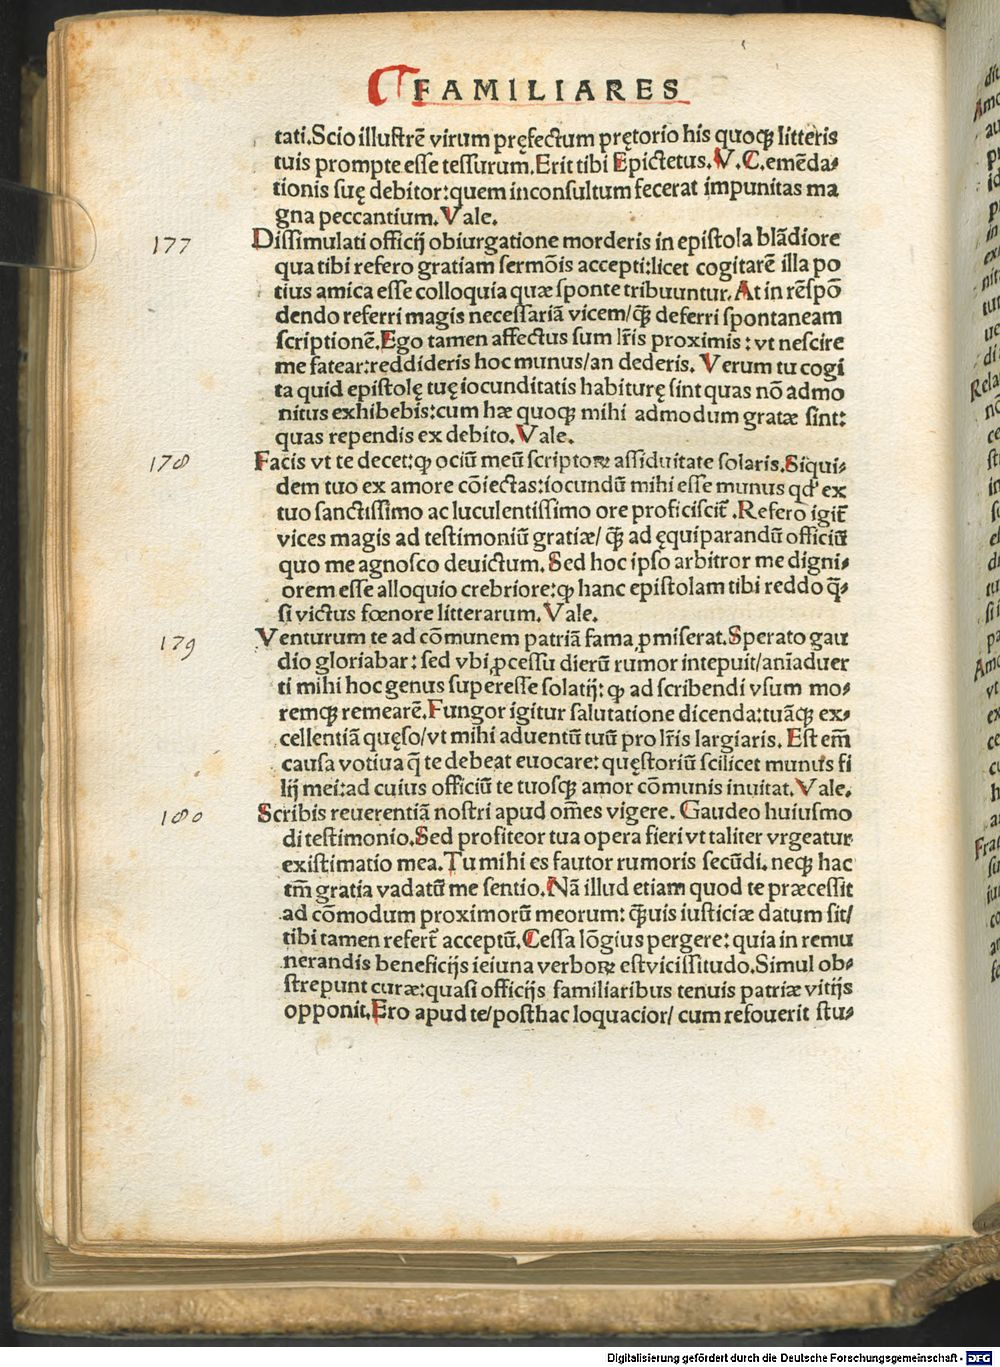 FAMILIARES
tati.Scio illustrẽ virum pręfectum prętorio his quoqꝫ litteris
tuis prompte esse tessurum.Erit tibi Epictetus.V.C.emẽda⸗
tionis suę debitor:quem inconsultum fecerat impunitas ma
gna peccantium.Vale.
177
Dissimulati officij obiurgatione morderis in epistola blãdiore
qua tibi refero gratiam sermõis accepti:licet cogitarẽ illa po
tius amica esse colloquia quæ sponte tribuuntur.At in rẽspõ
dendo referri magis necessariã vicem/q̃ꝫ deferri spontaneam
scriptionẽ.Ego tamen affectus sum lr̃is proximis:vt nescire
me fatear:reddideris hoc munus/an dederis.Verum tu cogi
ta quid epistolę tuę iocunditatis habiturę sint quas nõ admo
nitus exhibebis:cum hæ quoqꝫ mihi admodum gratæ sint:
quas rependis ex debito.Vale.
178
Facis vt te decet:ꝙ ociũ meũ scriptoꝝ assiduitate solaris.Siqui⸗
dem tuo ex amore cõiectas:iocundũ mihi esse munus qd' ex
tuo sanctissimo ac luculentissimo ore proficiscit᷑.Refero igit᷑
vices magis ad testimoniũ gratiæ/q̃ꝫ ad ęquiparandũ officiũ
quo me agnosco deuictum.Sed hoc ipso arbitror me digni⸗
orem esse alloquio crebriore:ꝙ hanc epistolam tibi reddo q̃⸗
si victus fœnore litterarum.Vale.
179
Venturum te ad cõmunem patriã fama ꝓmiserat.Sperato gau
dio gloriabar:sed vbi ꝓcessu dierũ rumor intepuit/aniãduer
ti mihi hoc genus superesse solatij:ꝙ ad scribendi vsum mo⸗
remqꝫ remearẽ.Fungor igitur salutatione dicenda:tuãqꝫ ex⸗
cellentiã quęso/vt mihi aduentũ tuũ pro lr̃is largiaris.Est em̃
causa votiua q̃ te debeat euocare:quęstoriũ scilicet munus fi
lij mei:ad cuius officiũ te tuosqꝫ amor cõmunis inuitat.Vale.
180
Scribis reuerentiã nostri apud om̃es vigere.Gaudeo huiusmo
di testimonio.Sed profiteor tua opera fieri vt taliter vrgeatur
existimatio mea.Tu mihi es fautor rumoris secũdi.neqꝫ hac
tm̃ gratia vadatũ me sentio.Nã illud etiam quod te præcessit
ad cõmodum proximorũ meorum:q̃ꝫuis iusticiæ datum sit/
tibi tamen refert᷑ acceptũ.Cessa lõgius pergere:quia in remu
nerandis beneficijs ieiuna verboꝝ est vicissitudo.Simul ob⸗
strepunt curæ:quasi officijs familiaribus tenuis patriæ vitijs
opponit.Ero apud te/posthac loquacior/cum refouerit stu⸗
Digitalisierung gefördert durch die Deutsche Forschungsgemeinschaft - DFG